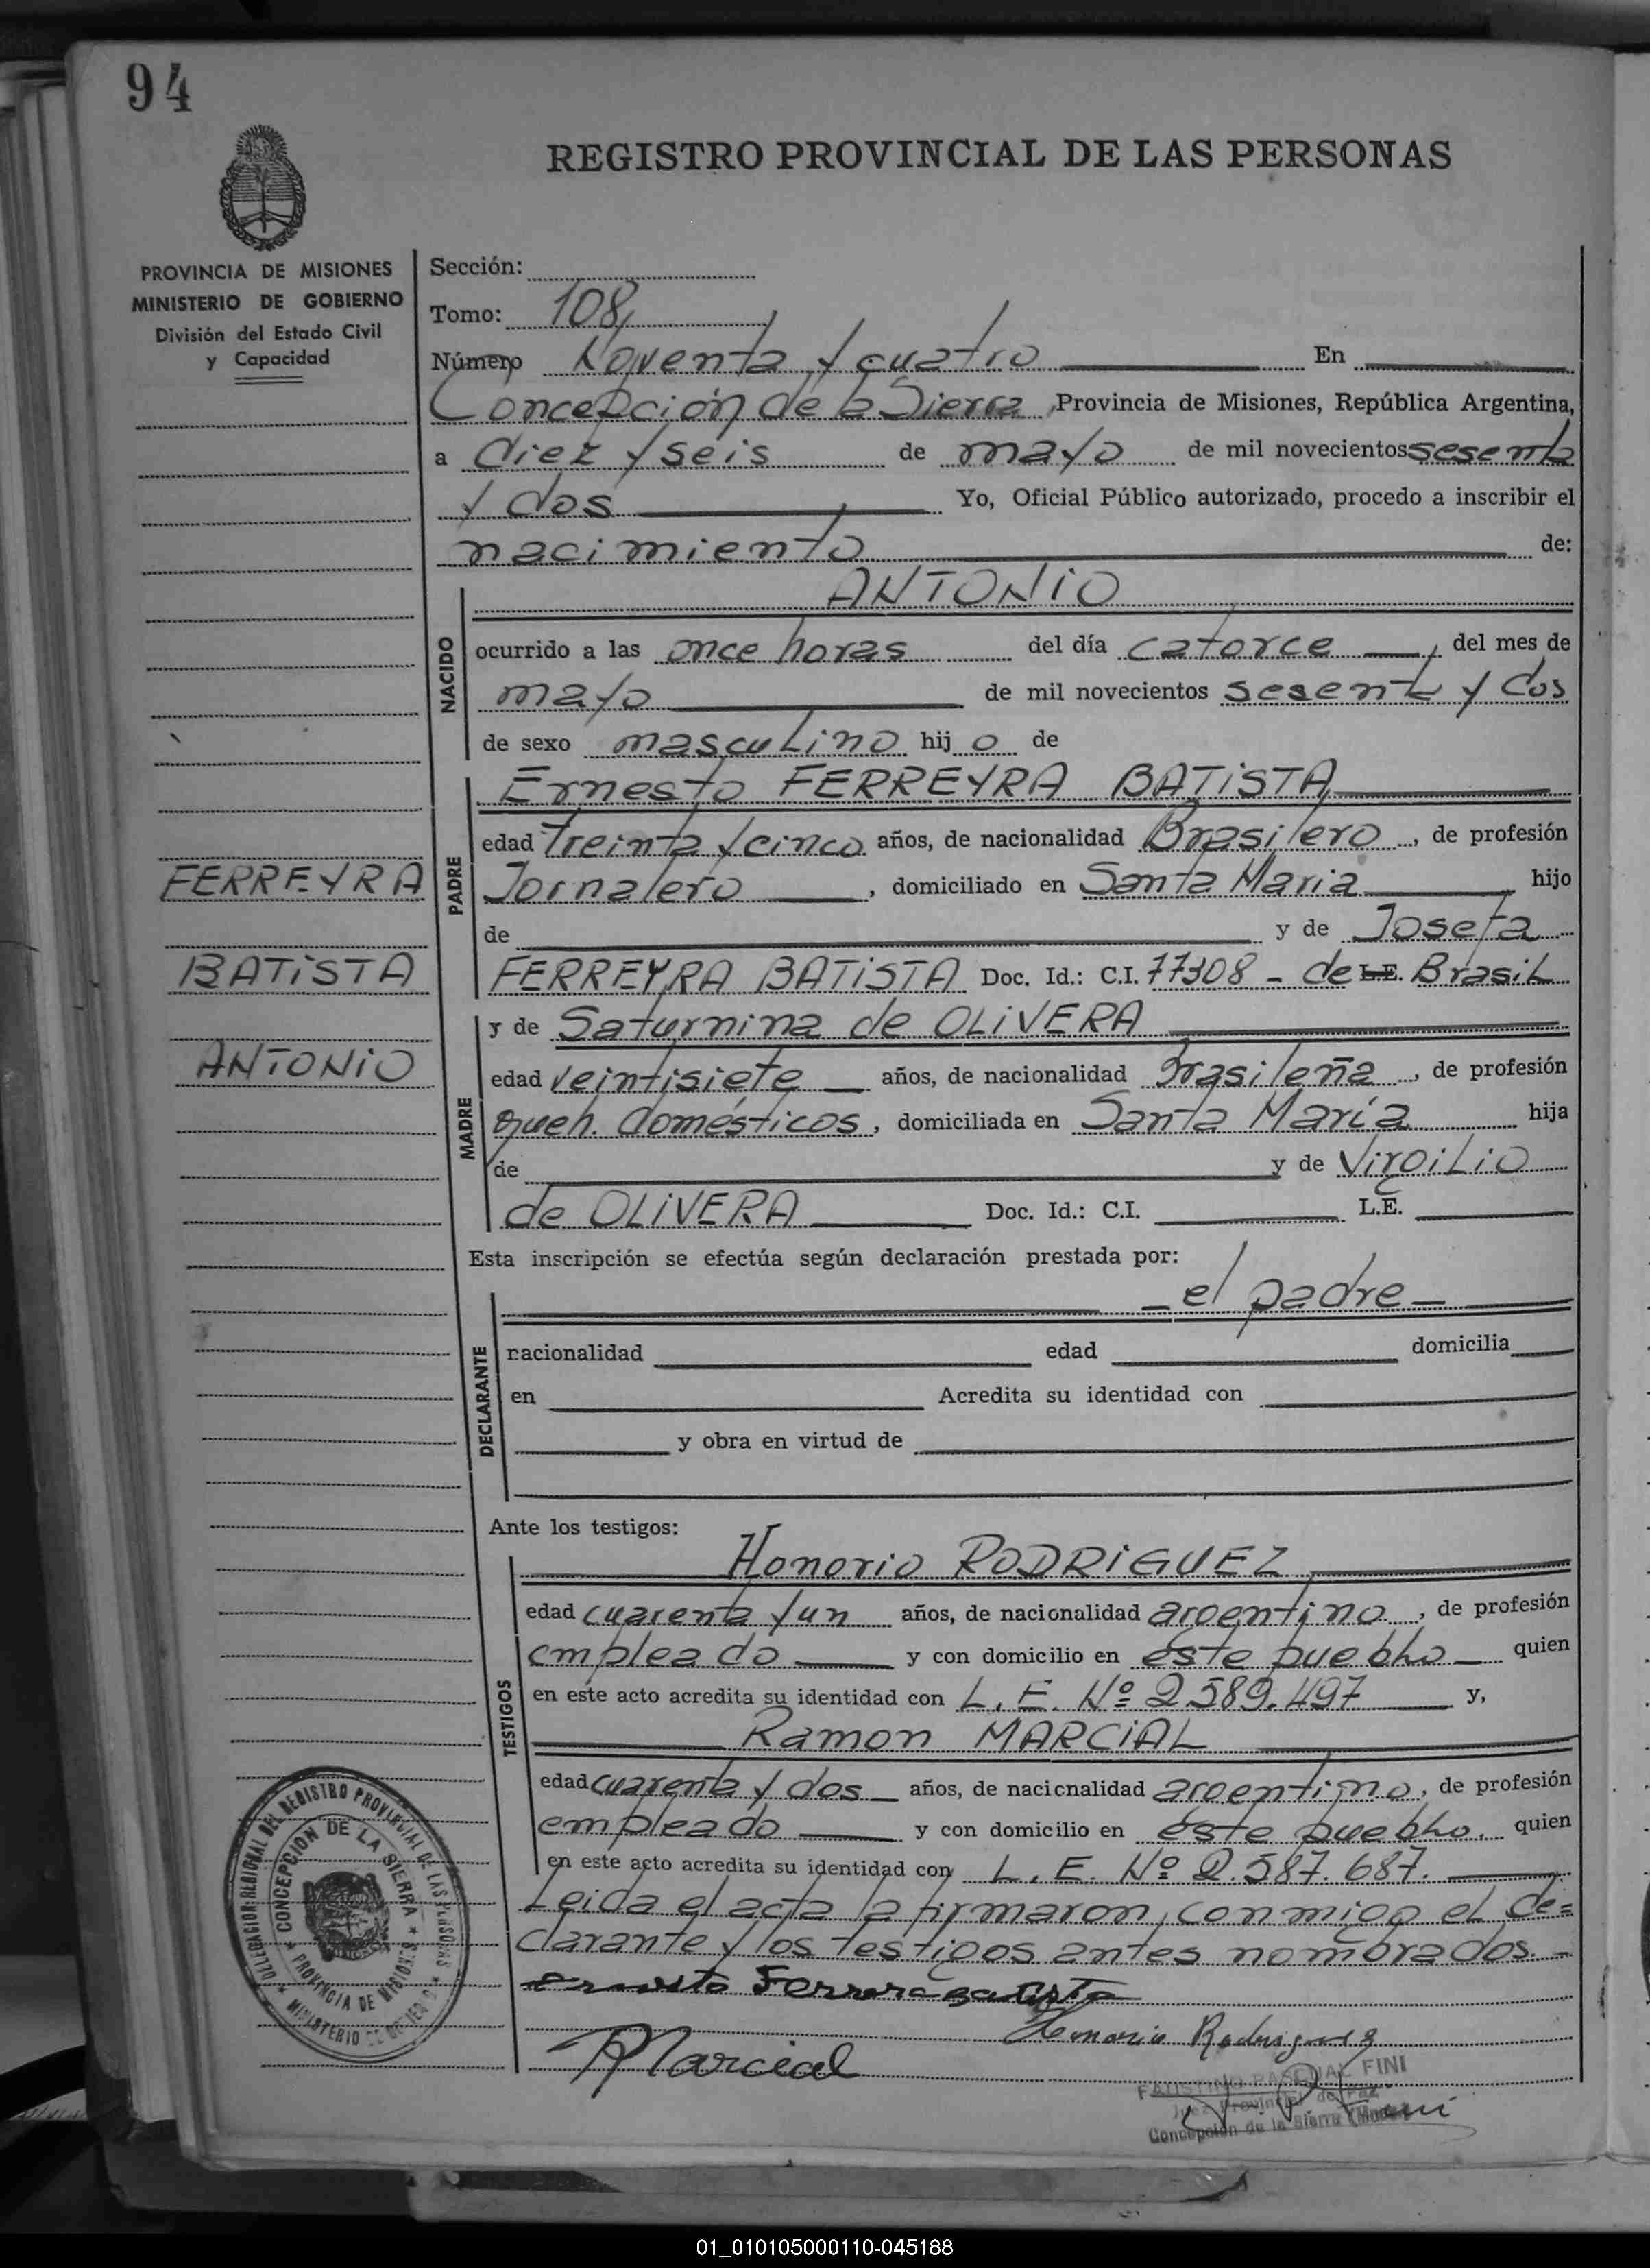 94
REGISTRO PROVINCIAL DE LAS PERSONAS
PROVINCIA DE MISIONES
MINISTERIO DE GOBIERNO
División del Estado Civil
y Capacidad
Sección:
Tomo: 108
Número Noventa y cuatro En
Concepción de la Sierra, Provincia de Misiones, República Argentina,
a diez y seis de mayo de mil novecientos sesenta
y dos Yo, Oficial Público autorizado, procedo a inscribir el
nacimiento de:
ANTONIO
NACIDO
ocurrido a las once horas del día catorce, del mes de
mayo de mil novecientos sesenta y dos
de sexo masculino hijo de
Ernesto FERREYRA BATISTA
PADRE
edad treinta y cinco años, de nacionalidad Brasilero, de profesión
Jornalero, domiciliado en Santa Maria hijo
de y de Josefa
FERREYRA BATISTA Doc. Id.: C.I. 77308 - de L.E. Brasil
FERREYRA
BATISTA
ANTONIO
y de Saturnina de OLIVERA
MADRE
edad veintisiete años, de nacionalidad Brasileña, de profesión
queh. domésticos, domiciliada en Santa María hija
de y de Virgilio
de OLIVERA Doc. Id.: C.I. L.E.
Esta inscripción se efectúa según declaración prestada por:
- el padre -
DECLARANTE
nacionalidad edad domicilia
en Acredita su identidad con
y obra en virtud de
Ante los testigos:
Honorio RODRIGUEZ
TESTIGOS
edad cuarenta y un años, de nacionalidad argentino, de profesión
empleado y con domicilio en éste pueblo quien
en este acto acredita su identidad con L.E. Nº 2.589.497 y,
Ramon MARCIAL
edad cuarenta y dos años, de nacionalidad argentino, de profesión
empleado y con domicilio en éste pueblo. quien
en este acto acredita su identidad con L.E. Nº 2.587.687.
Leida el acta la firmaron, conmigo el de=
clarante y los testigos antes nombrados. -
ernesto Ferrera batista
Honorio Rodriguez
Marcial
FAUSTINO PASCUAL FINI
Juez Provincial de Paz
Concepción de la Sierra
DELEGACION REGIONAL DEL REGISTRO PROVINCIAL DE LAS PERSONAS
CONCEPCION DE LA SIERRA
PROVINCIA DE MISIONES
MINISTERIO DE GOBIERNO
01_010105000110-045188